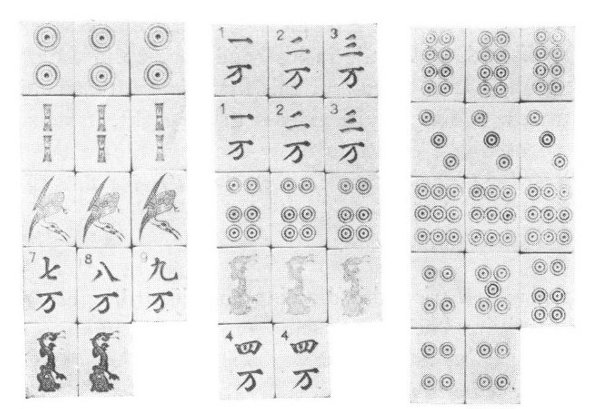 7 七 8 八 9 九
万 万 万
1 一 2 二 3 三
万 万 万
1 一 2 二 3 三
万 万 万
4 四 4 四
万 万